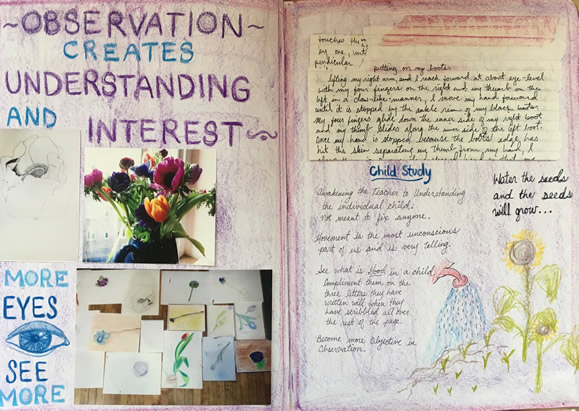 ~OBSERVATION~
CREATES
UNDERSTANDING
AND INTEREST
MORE
EYES
SEE
MORE
touches the
by one, until
putting on my boots
lifting my right arm, and I reach forward at about eye-level
with my four fingers on the right and my thumb on the
left in a claw-like manner, I move my hand forward
until it is stopped by the ankle rim of my black winter
My four fingers glide down the inner side of my right boot
and my thumb slides along the side of the left boot.
Once my hand is stopped because the boots edge has
hit the skin separating my thumb from my hand, I
Child Study
Awakening the Teacher to Understanding
the individual child.
Not meant to fix anyone.
Movement is the most unconscious
part of us and is very telling.
See what is Good in a child
Compliment them on the
three letters they have
written well when they
have scribbled all over
the rest of the page.
Become more Objective in
Observation.
Water the seeds
and the seeds
will grow...